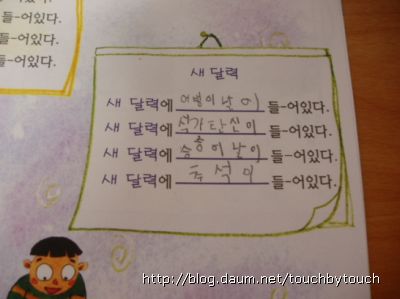 들-어있다.
들-어있다.
들-어있다.
새 달력
새 달력에 어범이날이 들-어있다.
새 달력에 석가탄신이 들-어있다.
새 달력에 승흥이날이 들-어있다.
새 달력에 추석이 들-어있다.
http://blog.daum.net/touchbytouch